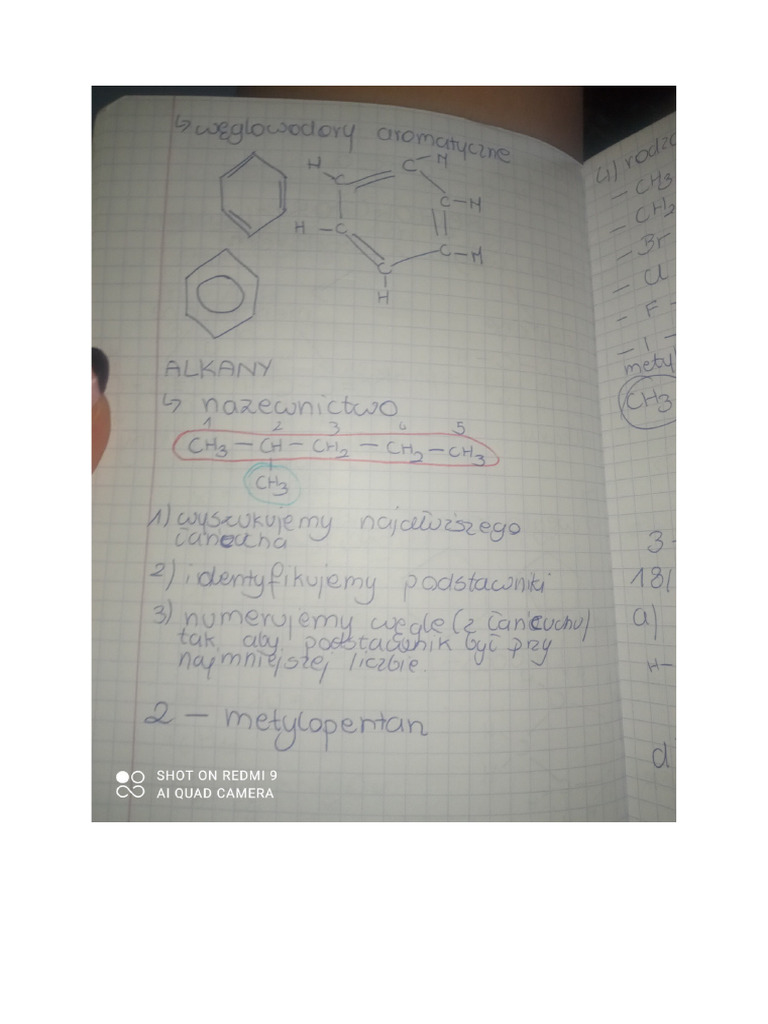 ↳ węglowodory aromatyczne
H C C - H
C - H
H - C
C - H
C
H
ALKANY
↳ nazewnictwo
1 2 3 4 5
CH3 - CH - CH2 - CH2 - CH3
CH3
1) wyszukujemy najdłuższego
łańcucha
2) identyfikujemy podstawniki
3) numerujemy węgle (z łańcuchu)
tak, aby podstawnik być przy
najmniejszej liczbie.
2 - metylopentan
4) rodz
- CH3
- CH2
- Br
- Cl
- F -
- I -
metyl
CH3
3 -
181
a)
H-
d
SHOT ON REDMI 9
AI QUAD CAMERA